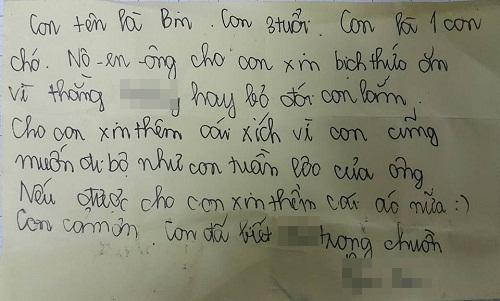 Con tên là Bin. Con 3 tuổi. Con là 1 con
chó. Nô-en ông cho con xin bịch thức ăn
vì thằng hay bỏ đói con lắm,
Cho con xin thêm cái xích vì con cũng
muốn đi bộ như con tuần lộc của ông
Nếu được cho con xin thêm cái áo nữa :)
Con cảm ơn. Con đã trong chuồn